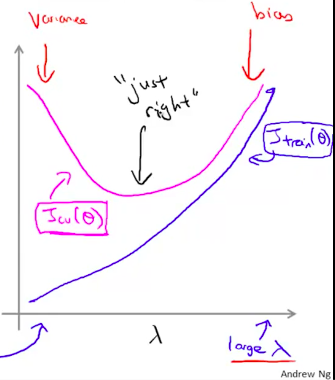 Variance
bias
"just
right"
Jtrain(θ)
Jcv(θ)
λ
large λ
Andrew Ng